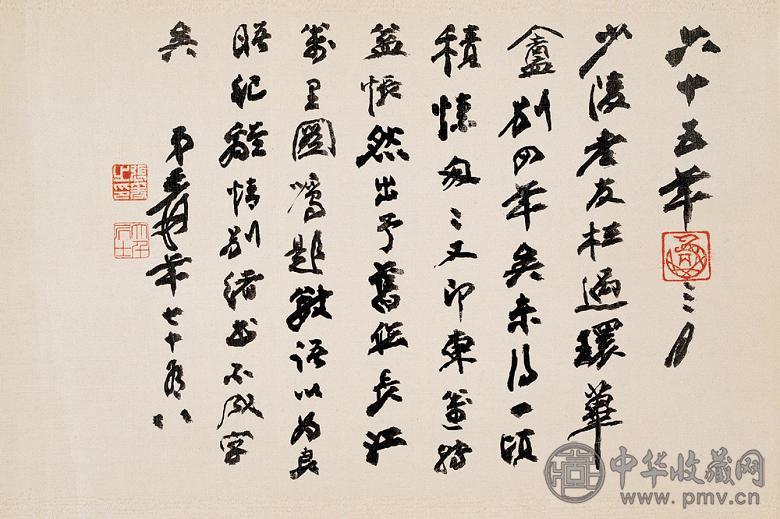 六十五年三月
少陵老友枉過環蓽
盦別四年矣未得一頃
積愫匆〻又即東邁特
並悵然出予舊作長江
萬里圖囑題數語以為真
賸犯離情別緒書不成字
矣
弟爰年七十有八
張爰之印
大千居士
中华收藏网
www.pmv.cn